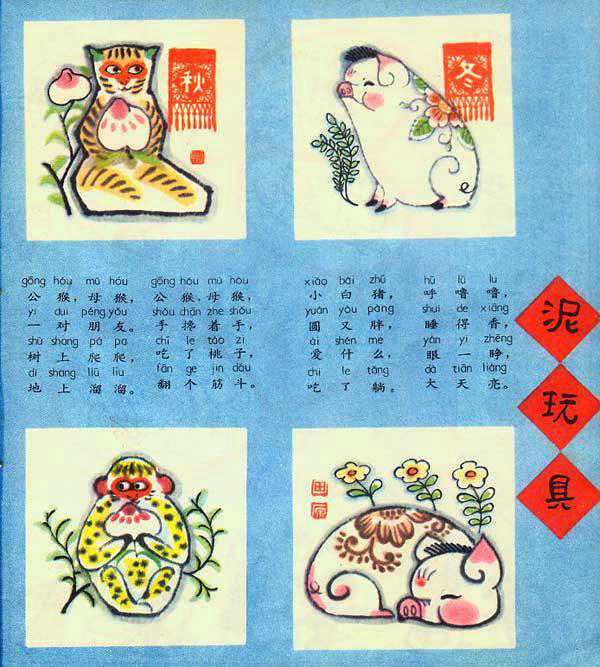 秋
冬
gōng hóu mǔ hóu
公猴,母猴,
yí duì péng yǒu
一对朋友。
shù shàng pá pá
树上爬爬,
dì shàng liū liū
地上溜溜。
gōng hóu mǔ hóu
公猴,母猴,
shǒu chān zhe shǒu
手搀着手,
chī le táo zi
吃了桃子,
fān ge jīn dǒu
翻个筋斗。
xiǎo bái zhū
小白猪,
yuán yòu pàng
圆又胖,
ài shén me
爱什么,
chī le tǎng
吃了躺。
hū lū lū
呼噜噜,
shuì de xiāng
睡得香,
yǎn yì zhēng
眼一睁,
dà tiān liàng
大天亮。
泥玩具
田原